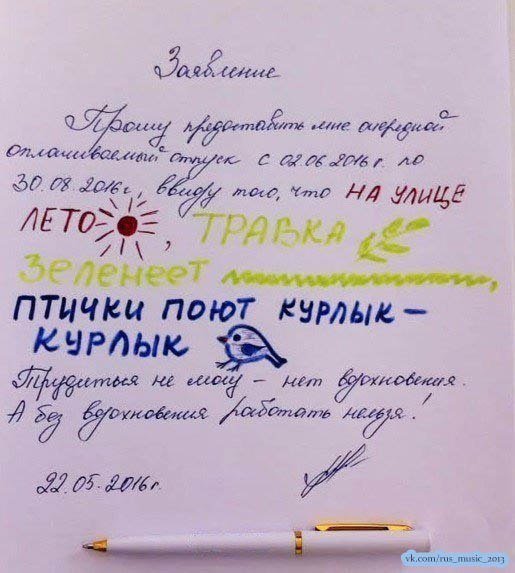 Заявление
Прошу предоставить мне очередной
оплачиваемый отпуск с 02.06.2016г. по
30.08.2016г, ввиду того, что НА УЛИЦЕ
ЛЕТО, ТРАВКА
Зеленеет,
ПТИЧКИ ПОЮТ КУРЛЫК –
КУРЛЫК
Трудиться не могу – нет вдохновения.
А без вдохновения работать нельзя!
22.05.2016г.
vk.com/rus_music_2013